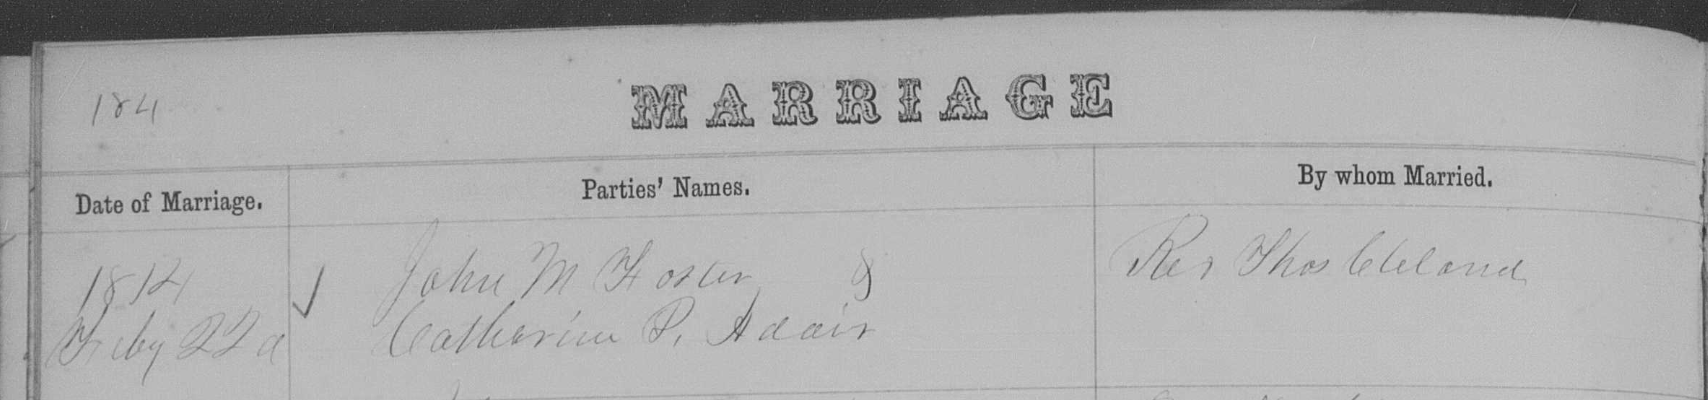 184
MARRIAGE
Date of Marriage. Parties' Names. By whom Married.
1814 John M Foster & Rev Thos Cleland
Feby 22d Catharine P. Adair